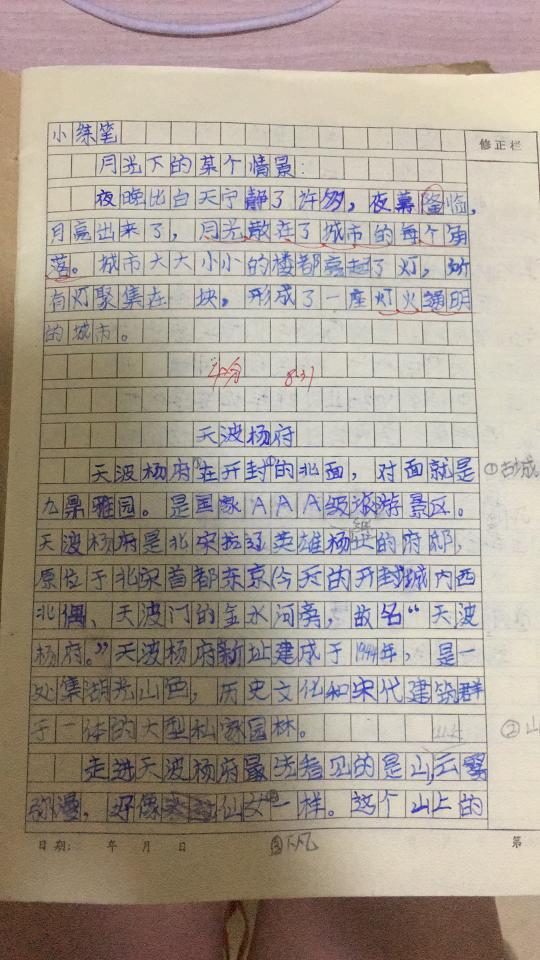 小练笔
修正栏
月光下的某个情景:
夜晚比白天宁静了许多,夜幕降临,
月亮出来了,月光散在了城市的每个角
落。城市大大小小的楼都亮起了灯,所
有灯聚集在一块,形成了一座灯火通明
的城市。
8.31
天波杨府
天波杨府在开封①的北面,对面就是
①古城
九鼎雅园。是国家AAA级旅游景区。
天波杨府是北宋抗辽英雄杨业的府邸,
原位于北宋首都东京(今天的开封)城内西
北偶、天波门的金水河旁,故名“天波
杨府。”天波杨府新址建成于1994年,是一
处集湖光山色,历史文化和宋代建筑群
于一体的大型私家园林。
②山
走进天波杨府最先看见的是山,云雾
弥漫,好像仙女③一样。这个山上的
日期: 年 月 日
③下凡
第